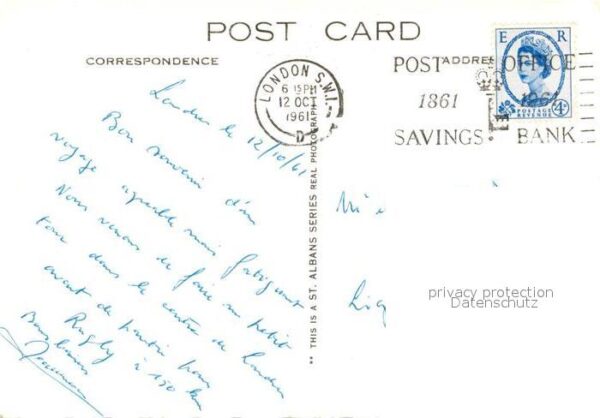 POST CARD
CORRESPONDENCE
ADDRE
LONDON S.W.1.
6 15PM
12 OCT
1961
D
POST OFFICE
1861 1961
SAVINGS BANK
E R
POSTAGE
REVENUE
4D
Londres le 12/10/61
Bon souvenir d'un
voyage agréable mais fatiguant
Nous venons de faire un petit
tour dans le centre de Londres
avant de partir pour
Rugby à 130 km
Bons baisers
** THIS IS A ST. ALBANS SERIES REAL PHOTOGRAPH
privacy protection
Datenschutz